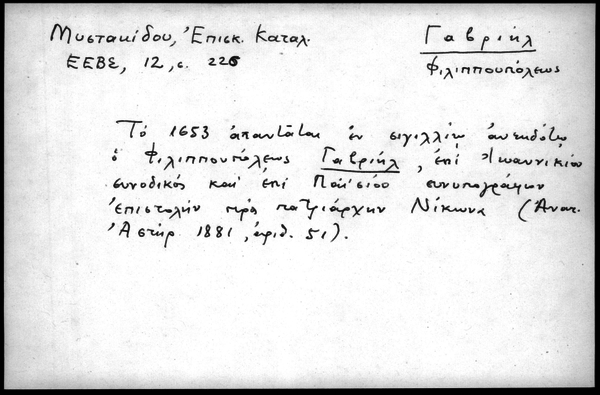 Μυστακίδου, Ἐπισκ. Καταλ.
ΕΕΒΣ, 12, σ. 226
Γαβριήλ
Φιλιππουπόλεως
Τό 1653 ἀπαντᾶται ἐν σιγιλλίῳ ἀνεκδότῳ
ὁ Φιλιππουπόλεως Γαβριήλ, ἐπί Ἰωαννικίου
συνοδικός καί ἐπί Παϊσίου συνυπογράφων
ἐπιστολήν πρός πατριάρχην Νίκωνα (Ἀνατ.
Ἀστήρ 1881, ἀριθ. 51).